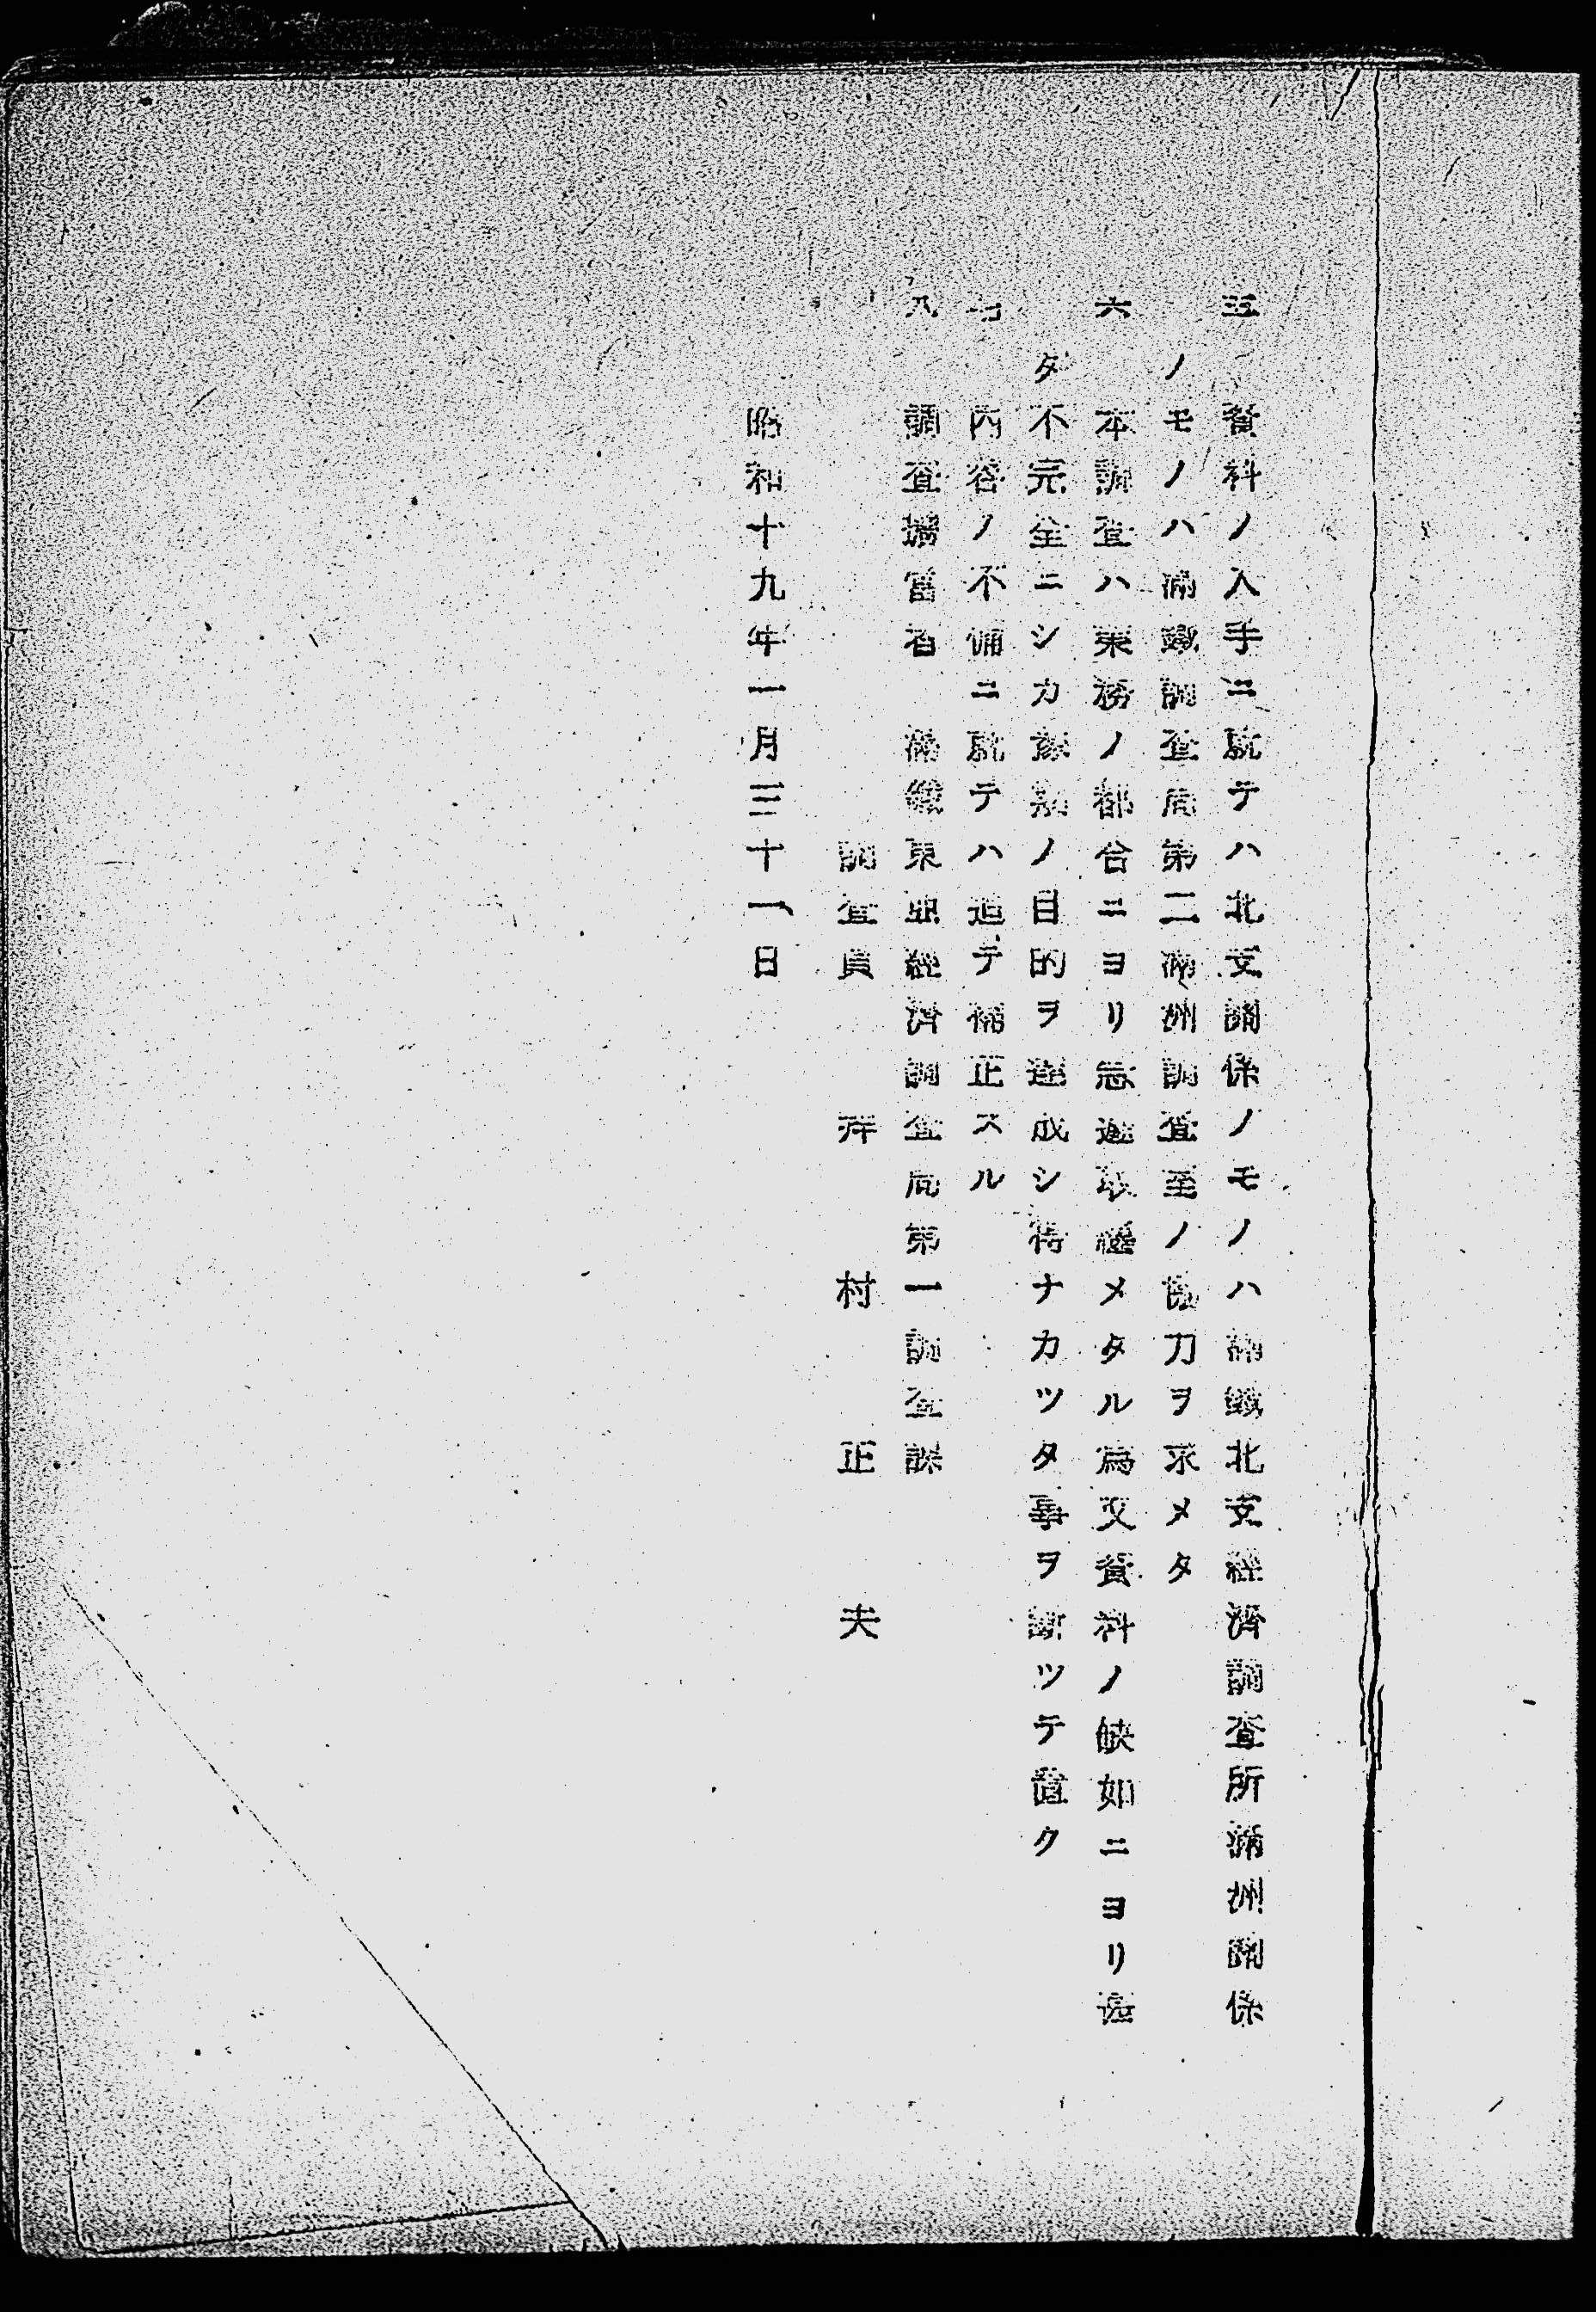 五　資料ノ入手ニ就テハ北支關係ノモノハ滿鐵北支經濟調査所滿洲關係
ノモノハ滿鐵調査局第二滿洲調査室ノ協力ヲ求メタ
六　本調査ハ業務ノ都合ニヨリ急遽取纏メタル爲又資料ノ缺如ニヨリ甚
タ不完全ニシカ豫期ノ目的ヲ達成シ得ナカツタ事ヲ斷ツテ置ク
七　内容ノ不備ニ就テハ追テ補正スル
八　調査擔當者　滿鐵東亞經濟調査局第一調査課
調査員　村正夫
昭和十九年一月三十一日